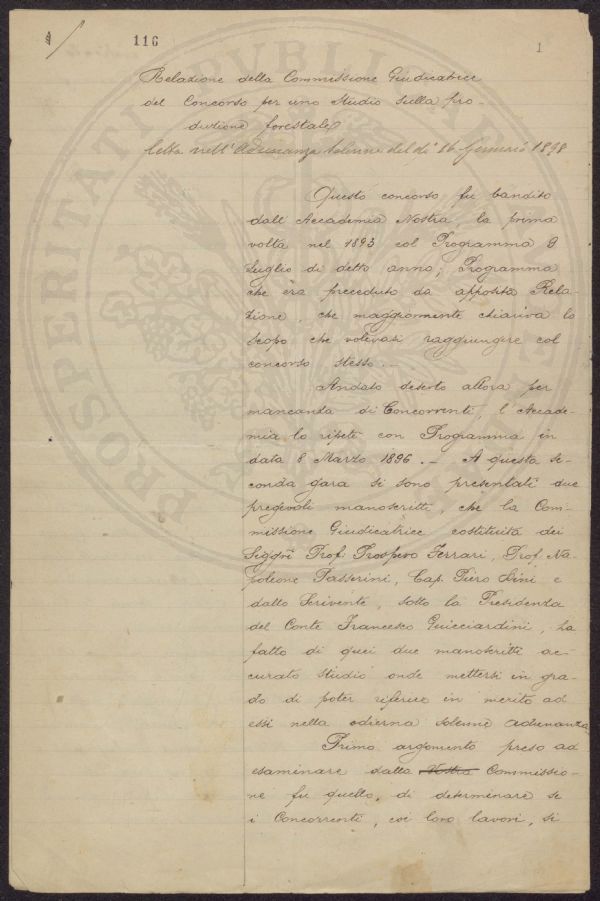 116
1
Relazione della Commissione Giudicatrice
del Concorso per uno Studio sulla pro-
duzione forestale
letta nell'Adunanza solenne del dì 16 Gennaio 1898
Questo concorso fu bandito
dall'Accademia Nostra la prima
volta nel 1893 col Programma 9
Luglio di detto anno; Programma
che era preceduto da apposita Rela-
zione, che maggiormente chiariva lo
scopo che volevasi raggiungere col
concorso stesso. -
Andato deserto allora per
mancanza di Concorrenti, l'Accade-
mia lo ripetè con Programma in
data 8 Marzo 1896. - A questa se-
conda gara si sono presentati due
pregevoli manoscritti, che la Com-
missione Giudicatrice costituita dei
Siggri Prof: Prospero Ferrari, Prof. Na-
poleone Passerini, Cap. Piero Dini e
dallo Scrivente, sotto la Presidenza
del Conte Francesco Guicciardini, ha
fatto di quei due manoscritti ac-
curato studio onde mettersi in gra-
do di poter riferire in merito ad
essi nella odierna solenne adunanza
Primo argomento preso ad
esaminare dalla Nostra Commissio-
ne fu quello, di determinare se
i Concorrenti, coi loro lavori, si
PROSPERITATI PVBLICAE